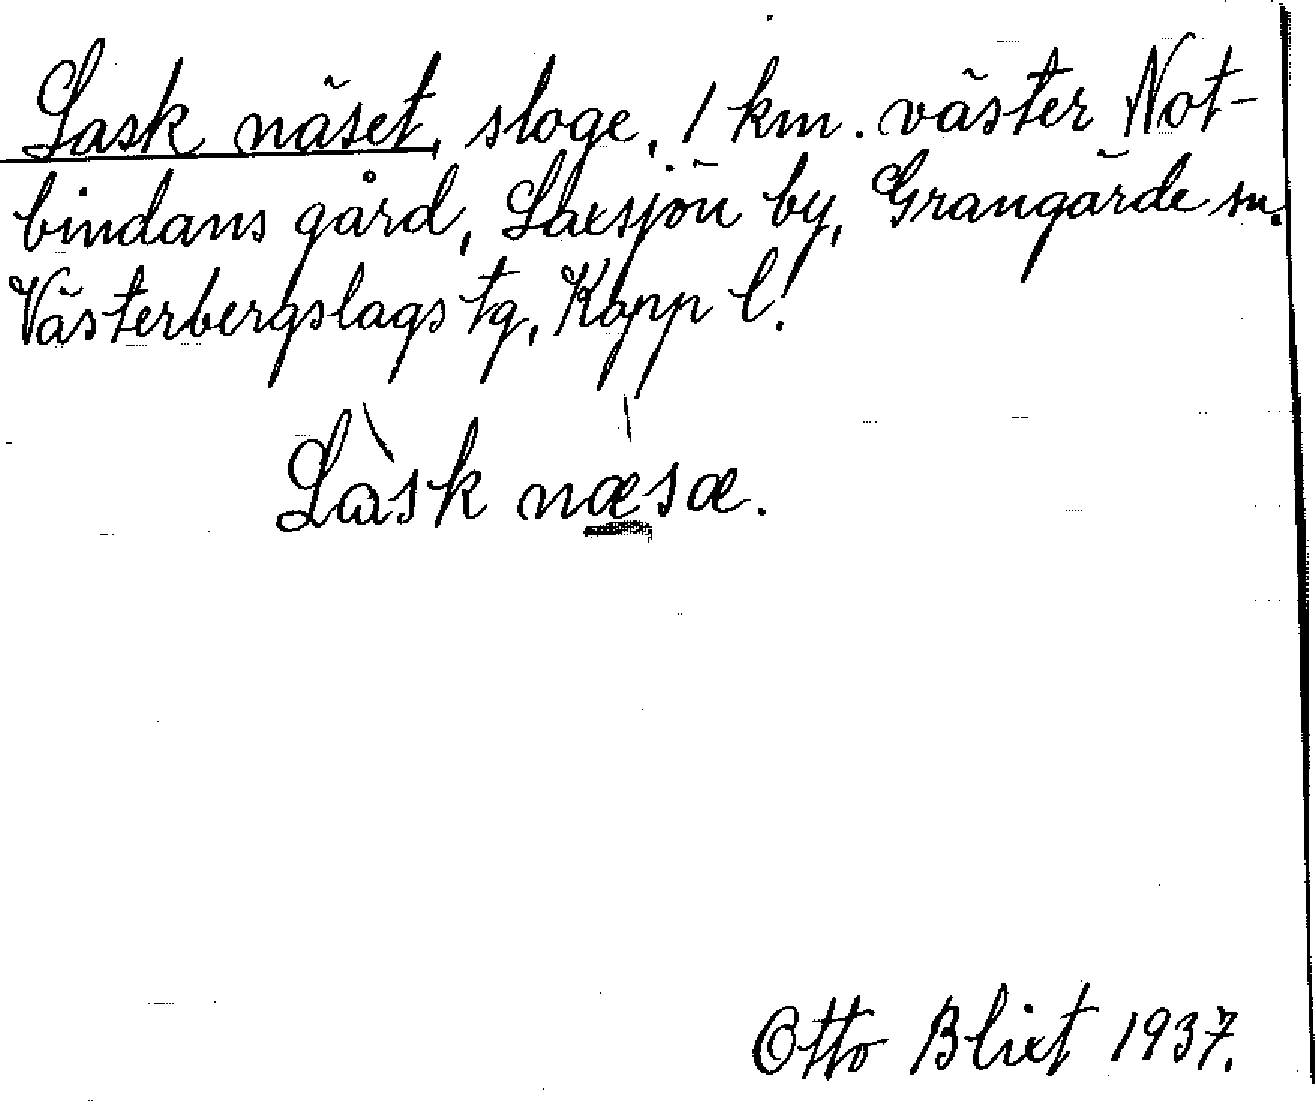 Lask näset, sloge, 1 km. väster Not-
bindans gård, Laxsjön by, Grangärde sn.
Västerbergslags tg, Kopp l.
Làsk næsæ.
Otto Blixt 1937.